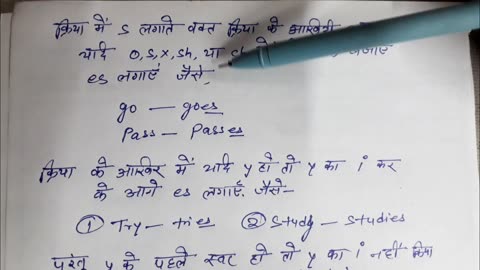 क्रिया में s लगाते वक्त क्रिया के आखिरी
यदि o, s, x, sh, या ch
es लगाएं जैसे,
go — goes
Pass — Passes
क्रिया के आखिर में यदि y हो तो y का i कर
के आगे es लगाएँ. जैसे—
① Try — tries ② Study — studies
परंतु y के पहले स्वर हो तो y का i नहीं किया